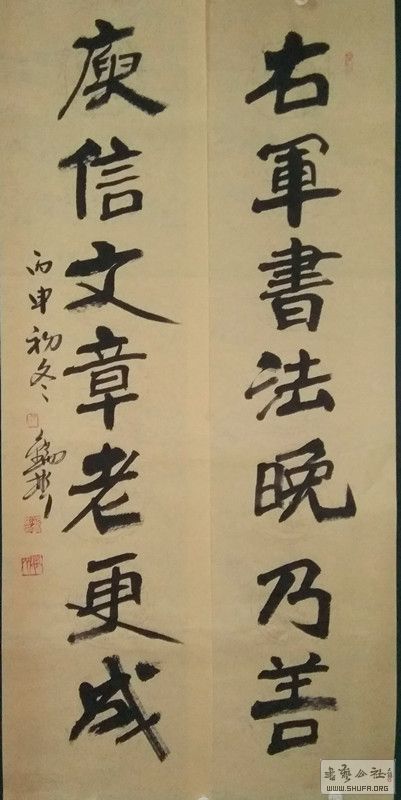 右軍書法晚乃善
庾信文章老更成
丙申初冬
書藝公社
WWW.SHUFA.ORG